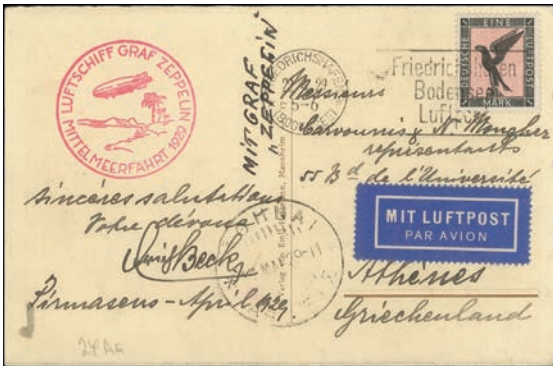 LUFTSCHIFF GRAF ZEPPELIN
MITTELMEERFAHRT 1929
MIT GRAF
"ZEPPELIN"
FRIEDRICHSHAFEN
(BODENSEE)
Friedrichshafen
Bodensee
DEUTSCHE
EINE
LUFTPOST
MARK
Messieurs
Carvounis & N.
représentants
55 Bd de l'Université
MIT LUFTPOST
PAR AVION
Athènes
Griechenland
sincères salutations
Votre dévoué
Beck
Pirmasens - April 1929
ΑΘΗΝΑΙ
24Aa